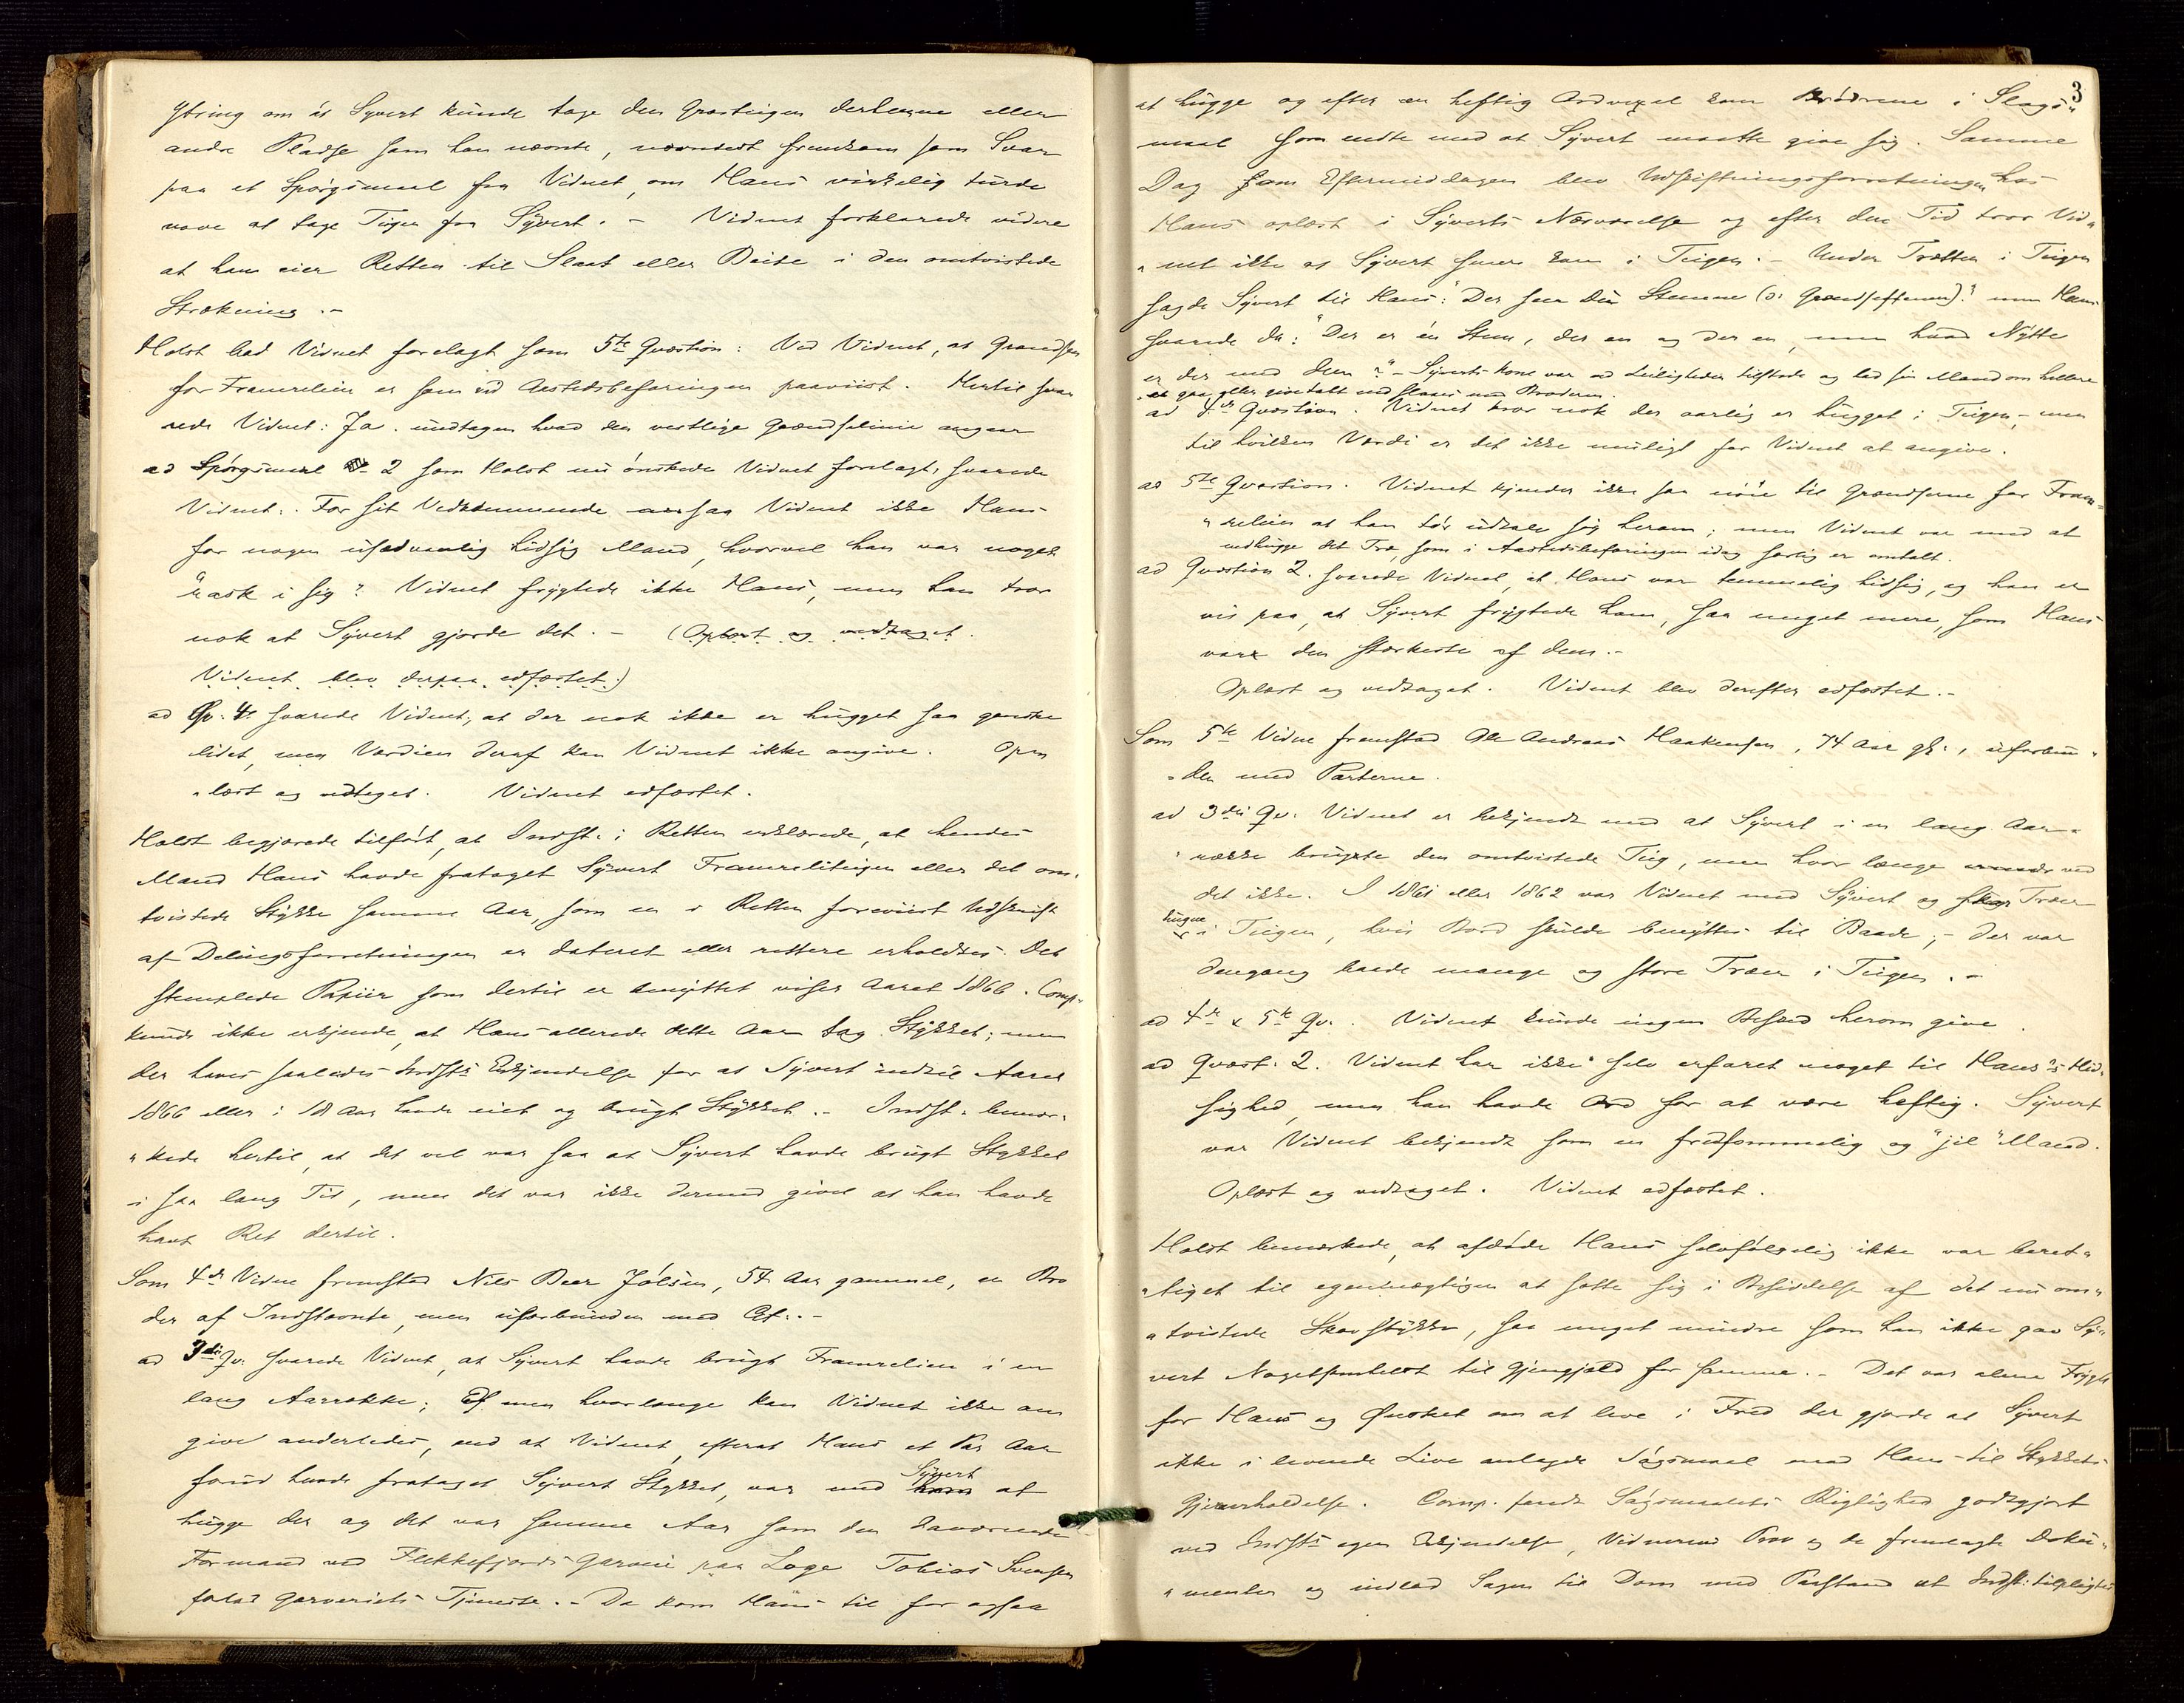 Ytring om at Syvert kunde tage den Græsteigen derhenne eller
andre Pladse som han nævnte, nævntest fremkom som Svar
paa et Spørgsmaal fra Vidnet, om Hans virkelig turde
vove at tage Teigen fra Syvert. – Vidnet forklarede videre
at han eier Retten til Slaat eller Beite i den omtvistede
Strækning. –
Holst bad Vidnet forelagt som 5te Qvæstion: Ved Vidnet, at Grændsen
for Framrelien er som ved Aastedsbefaringen paaviist. Hertil sva-
rede Vidnet: Ja. undtagen hvad den vestlige Grændselinie angaar
ad Spørgsmaal 2 som Holst nu ønskede Vidnet forelagt, svarede
Vidnet: For sit Vedkommende ansaa Vidnet ikke Hans
for nogen usædvanlig hidsig Mand, hvorvel han var noget
"rask i sig". Vidnet frygtede ikke Hans, men han tror
nok at Syvert gjorde det. – (Oplæst og vedtaget.
Vidnet blev derpaa edfæstet.)
ad Qv. 4. svarede Vidnet, at der nok ikke er hugget saa ganske
lidet, men Værdien deraf kan Vidnet ikke angive. Op-
"læst og vedtaget. Vidnet edfæstet.
Holst begjærede tilført, at Indst. i Retten erklærede, at hendes
Mand Hans havde frataget Syvert Framreliteigen eller det om-
tvistede Stykke samme Aar, som en i Retten foreviist Udskrift
af Delingsforretningen er dateret eller rettere erholdtes. Det
stemplede Papiir som dertil er benyttet viser Aaret 1866. Comp.
kunde ikke erkjende, at Hans allerede dette Aar tog Stykket; men
der haves saaledes Indst's Erkjendelse for at Syvert indtil Aaret
1866 eller i 18 Aar havde eiet og brugt Stykket. – Indst. bemær-
"kede hertil, at det vel var saa at Syvert havde brugt Stykket
i saa lang Tid, men det var ikke dermed givet at han havde
havt Ret dertil.
Som 4de Vidne fremstod Nils Beer Jølsen, 54 Aar gammel, en Bro
der af Indstævnte, men uforbunden med Cit. –
ad 3die Qv. svarede Vidnet, at Syvert havde brugt Framrelien i en
lang Aarrække; men hvorlænge kan Vidnet ikke an
give anderledes, end at Vidnet, efterat Hans et Par Aar
forud havde frataget Syvert Stykket, var med Syvert at
hugge der og det var samme Aar som den daværende
Formand ved Flekkefjords Garveri paa Loge Tobias Svensen
forlod Garveriets Tjeneste. – Da kom Hans til for ogsaa
3
at hugge og efter en heftig Ordvexel kom Brødrene i Slags-
maal som endte med at Syvert maatte give sig. Samme
Dag om Eftermiddagen blev Udskiftningsforretningen hos
Hans oplæst i Syverts Nærværelse og efter den Tid tror Vid-
"net ikke at Syvert senere kom i Teigen. – Under Trætten i Teigen
sagde Syvert til Hans: "Der seer Du Stemne (ɔ: Grændsestemne)." men Hans
svarede da: "Der er én Stem, der en og der en, men hvad Nytte
er der med dem?" – Syverts Kone var ved Leiligheden tilstede og bad sin Mand om hellere
at gaa eller give tabt end slaaes med Broderen.
ad 4de Qvæstion. Vidnet tror nok der aarlig er hugget i Teigen, – men
til hvilken Værdi er det ikke muligt for Vidnet at angive.
ad 5te Qvæstion. Vidnet kjender ikke saa nøie til Grændserne for Fram-
"relien at han tør udtale sig herom; men Vidnet var med at
nedhugge det Træ, som i Aastedsbefaringen idag særlig er omtalt.
ad Qvæstion 2. svarede Vidnet, at Hans var temmelig hidsig, og han er
vis paa, at Syvert frygtede ham, saa meget mere, som Hans
var den stærkeste af dem. –
Oplæst og vedtaget. Vidnet blev derefter edfæstet. –
Som 5te Vidne fremstod Ole Andreas Haakensen, 74 Aar gl., uforbun-
"den med Parterne.
ad 3die Qv. Vidnet er bekjendt med at Syvert i en lang Aar-
"række brugte den omtvistede Teig, men hvor længe ved
det ikke. I 1861 eller 1862 var Vidnet med Syvert og Træer
hugne i Teigen, hvis Bord skulde benyttes til Baade; – der var
dengang baade mange og store Træer i Teigen. –
ad 4de & 5te Qv. Vidnet kunde ingen Besked herom give.
ad Qvæst. 2. Vidnet har ikke selv erfaret noget til Hans's Hid-
sighed, men han havde Ord for at være heftig. Syvert
var Vidnet bekjendt som en fredsommelig og "jil" Mand.
Oplæst og vedtaget. Vidnet edfæstet.
Holst bemærkede, at afdøde Hans selvfølgelig ikke var beret-
"tiget til egenmægtigen at sætte sig i Besiddelse af det nu om-
"tvistede Skovstykke, saa meget mindre som han ikke gav Sy-
vert Nogetsomhelst til Gjengjæld for samme. – Det var alene Frygt
for Hans og Ønsket om at leve i Fred der gjorde at Syvert
ikke i levende Live anlagde Søgsmaal mod Hans til Stykkets
Gjenerholdelse. Comp. fandt Søgsmaalets Rigtighed godtgjort
ved Indst's egen Erkjendelse, Vidnernes Prov og de fremlagte Doku-
"menter og indlod Sagen til Dom med Paastand at Indst. tilpligtes